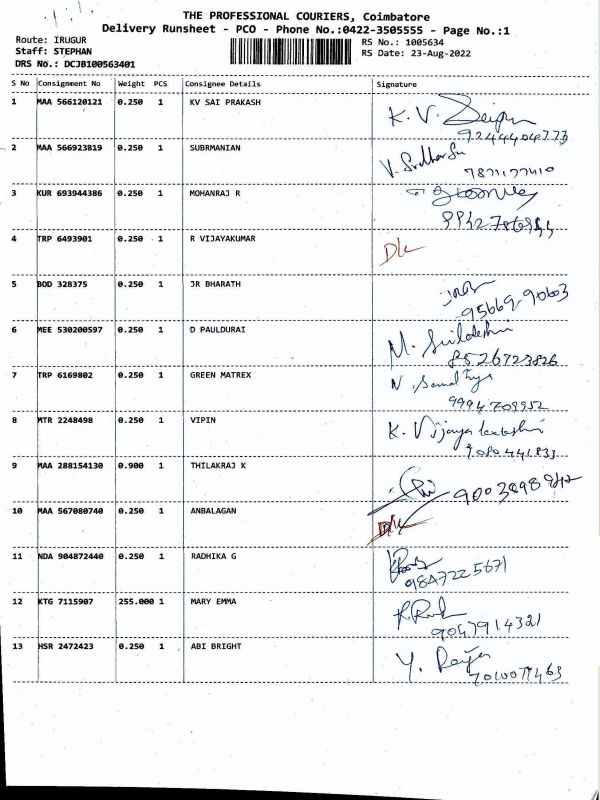 THE PROFESSIONAL COURIERS, Coimbatore
Delivery Runsheet - PCO - Phone No.:0422-3505555 - Page No.:1
Route: IRUGUR
RS No.: 1005634
Staff: STEPHAN
RS Date: 23-Aug-2022
DRS No.: DCJB100563401
S No Consignment No Weight PCS Consignee Details Signature
1 MAA 566120121 0.250 1 KV SAI PRAKASH K. V.
9244404773
2 MAA 566923819 0.250 1 SUBRMANIAN V.
3 KUR 693944386 0.250 1 MOHANRAJ R
4 TRP 6493901 0.250 1 R VIJAYAKUMAR D/L
5 BOD 328375 0.250 1 JR BHARATH
95669 90603
6 MEE 530200597 0.250 1 D PAULDURAI M.
8526723826
7 TRP 6169802 0.250 1 GREEN MATREX N.
9994709952
8 MTR 2248498 0.250 1 VIPIN K. Vijaya
9080441833
9 MAA 288154130 0.900 1 THILAKRAJ K
10 MAA 567080740 0.250 1 ANBALAGAN D/L
11 NDA 904872440 0.250 1 RADHIKA G
9847225671
12 KTG 7115907 255.000 1 MARY EMMA
9047914321
13 HSR 2472423 0.250 1 ABI BRIGHT Y.